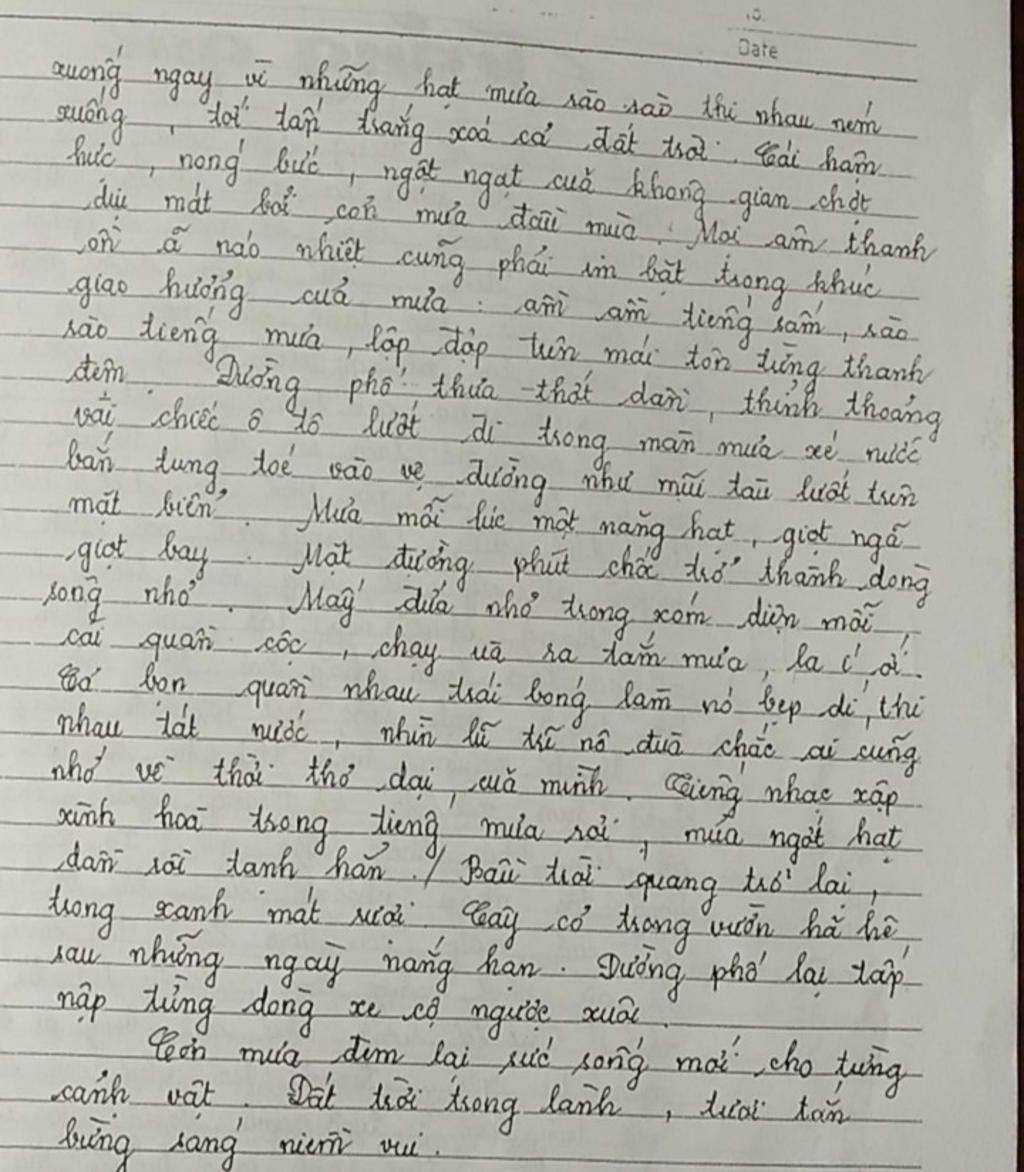 Date
xuống ngay vì những hạt mưa sào sào thi nhau ném
xuống, tới tấp trắng xoá cả đất trời. Cái hầm
hực, nóng bức, ngột ngạt của không gian chợt
dịu mát bởi cơn mưa đầu mùa. Mọi âm thanh
ồn ã náo nhiệt cũng phải im bặt trong khúc
giao hưởng của mưa: ầm ầm tiếng sấm, sào
sào tiếng mưa, lộp độp trên mái tôn từng thanh
đệm. Đường phố thưa thớt dần, thỉnh thoảng
vài chiếc ô tô lướt đi trong màn mưa xé nước
bắn tung toé vào vệ đường như mũi tàu lướt trên
mặt biển. Mưa mỗi lúc một nặng hạt, giọt ngã
giọt bay. Mặt đường phút chốc trở thành dòng
sông nhỏ. Mấy đứa nhỏ trong xóm diện mỗi
cái quần cộc, chạy ùa ra tắm mưa, la í ới.
Có bọn quần nhau trái bóng làm nó bẹp dí, thi
nhau tát nước, nhìn lũ trẻ nô đùa chắc ai cũng
nhớ về thời thơ dại của mình. Tiếng nhạc xập
xình hoà trong tiếng mưa rơi, mưa ngớt hạt
dần rồi tạnh hẳn./ Bầu trời quang trở lại,
trong xanh mát rượi. Cây cỏ trong vườn hả hê
sau những ngày nắng hạn. Đường phố lại tấp
nập từng dòng xe cộ ngược xuôi.
Cơn mưa đem lại sức sống mới cho từng
cảnh vật. Đất trời trong lành, tươi tắn
bừng sáng niềm vui.